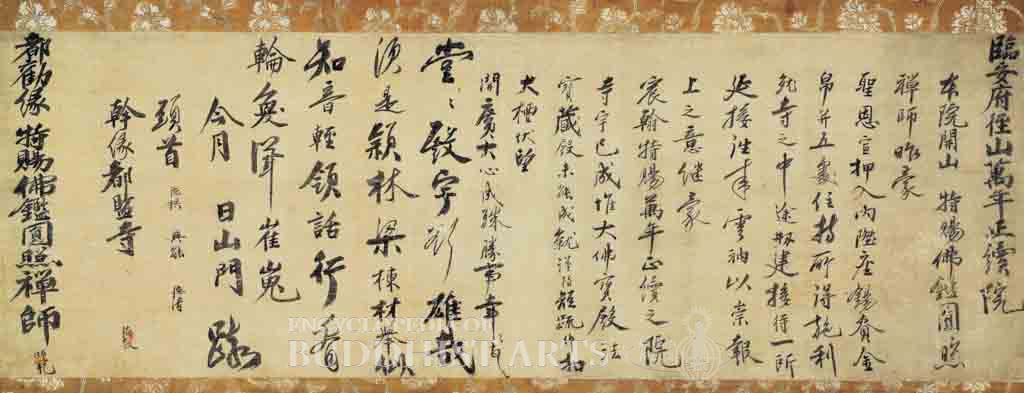 臨安府徑山萬年正續院
本院開山 特賜佛鑑圓照
禅師昨蒙
聖恩宣押入內陞座錫賚金
帛并五處住持所得施利
就寺之中途建接待一所
延接往來雲衲以崇報
上之意継蒙
宸翰特賜萬年正續之院
寺宇已成惟大佛寶殿法
寶藏殿未能成就謹持短疏仰扣
大檀伏望
開廣大心成殊勝事幸
堂々殿宇雄哉
須是穎林梁棟材
知音輕領話行看
輪奐聳崔嵬
今月 日山門 疏
頭首
幹縁都監寺
都勧縁特賜佛鑑圓照禅師
ENCYCLOPEDIA OF
BUDDHIST ARTS